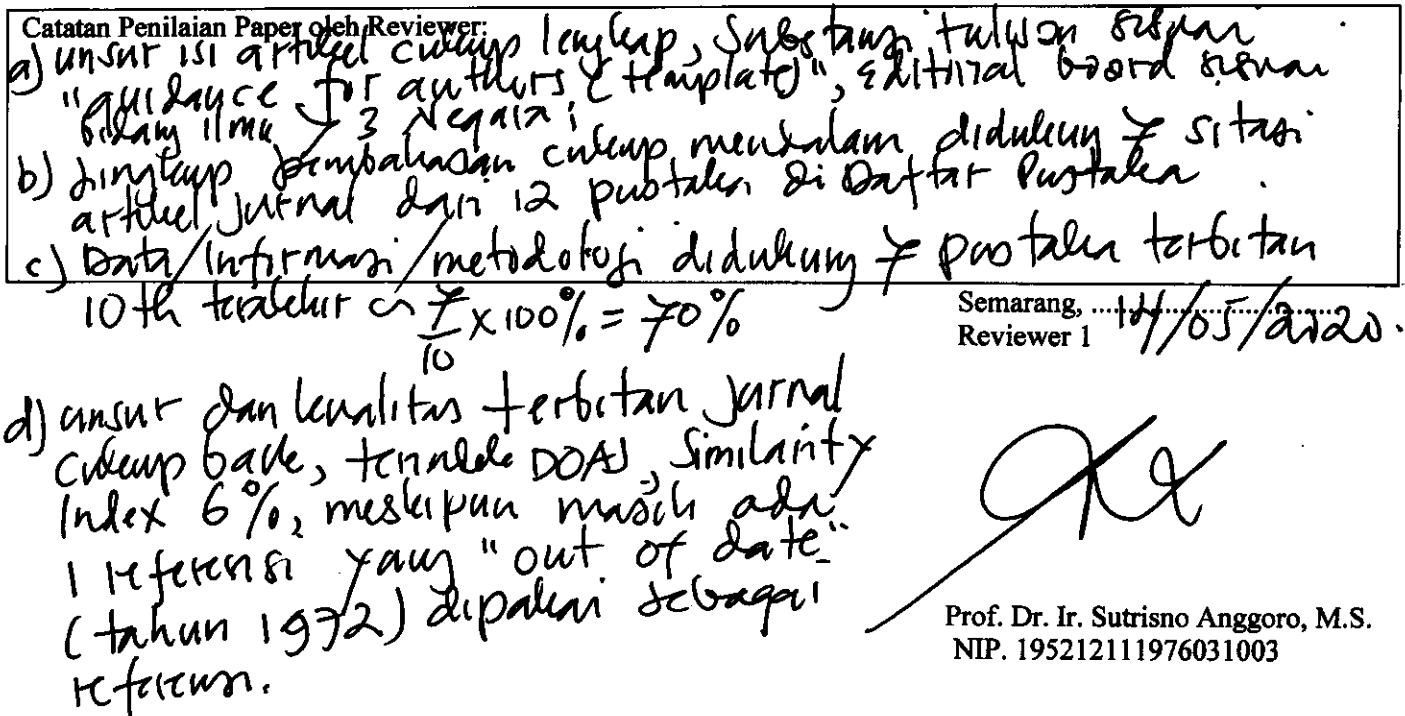 Catatan Penilaian Paper oleh Reviewer:
a) unsur isi artikel cukup lengkap, Substansi tulisan sesuai
"guidance for authors (template)", editorial board sesuai
bidang ilmu > 3 Negara;
b) Lingkup pembahasan cukup mendalam didukung 7 sitasi
artikel jurnal dari 12 pustaka di Daftar Pustaka.
c) Data/Informasi/metodologi didukung 7 pustaka terbitan
10 th terakhir 7/10 x 100% = 70%
Semarang, 14/05/2020.
Reviewer 1
d) unsur dan kualitas terbitan jurnal
cukup baik, terindeks DOAJ, Similarity
Index 6%, meskipun masih ada
1 referensi yang "out of date"
(tahun 1972) dipakai sebagai
referensi.
Prof. Dr. Ir. Sutrisno Anggoro, M.S.
NIP. 195212111976031003